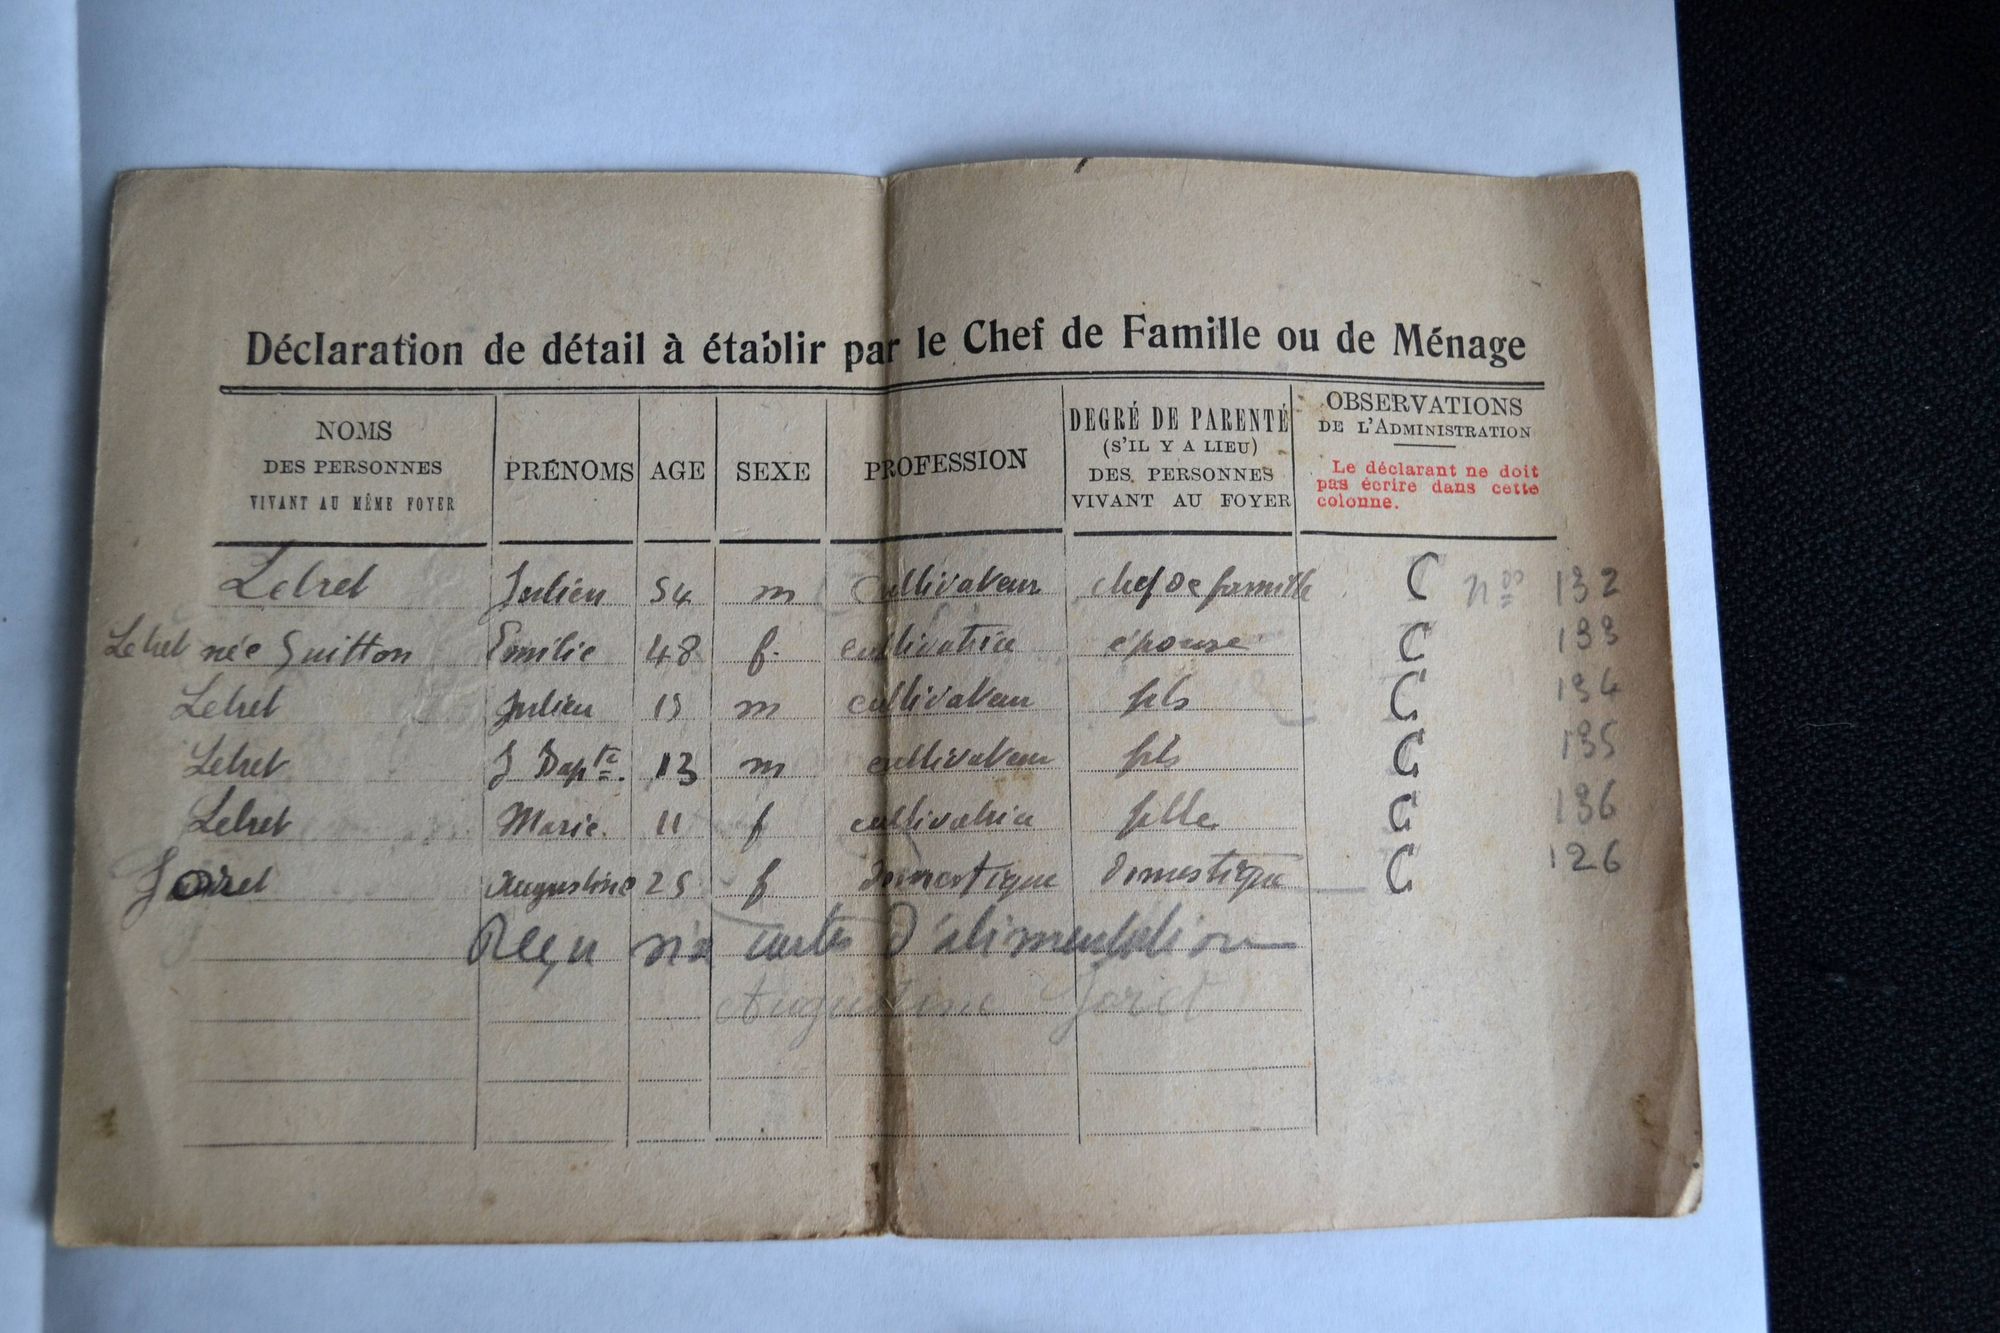 Déclaration de détail à établir par le Chef de Famille ou de Ménage
NOMS
DES PERSONNES
VIVANT AU MÊME FOYER
PRÉNOMS
AGE
SEXE
PROFESSION
DEGRÉ DE PARENTÉ
(S'IL Y A LIEU)
DES PERSONNES
VIVANT AU FOYER
OBSERVATIONS
DE L'ADMINISTRATION
Le déclarant ne doit
pas écrire dans cette
colonne.
Lebret Julien 54 m cultivateur chef de famille C nos 132
Lebret née Guitton Emilie 48 f. cultivatrice épouse C 133
Lebret Julien 15 m cultivateur fils C 134
Lebret J Bapte. 13 m cultivateur fils C 135
Lebret Marie. 11 f cultivatrice fille C 136
Joret Augustine 25 f domestique domestique C 126
Reçu six cartes d'alimentation
Augustine Joret